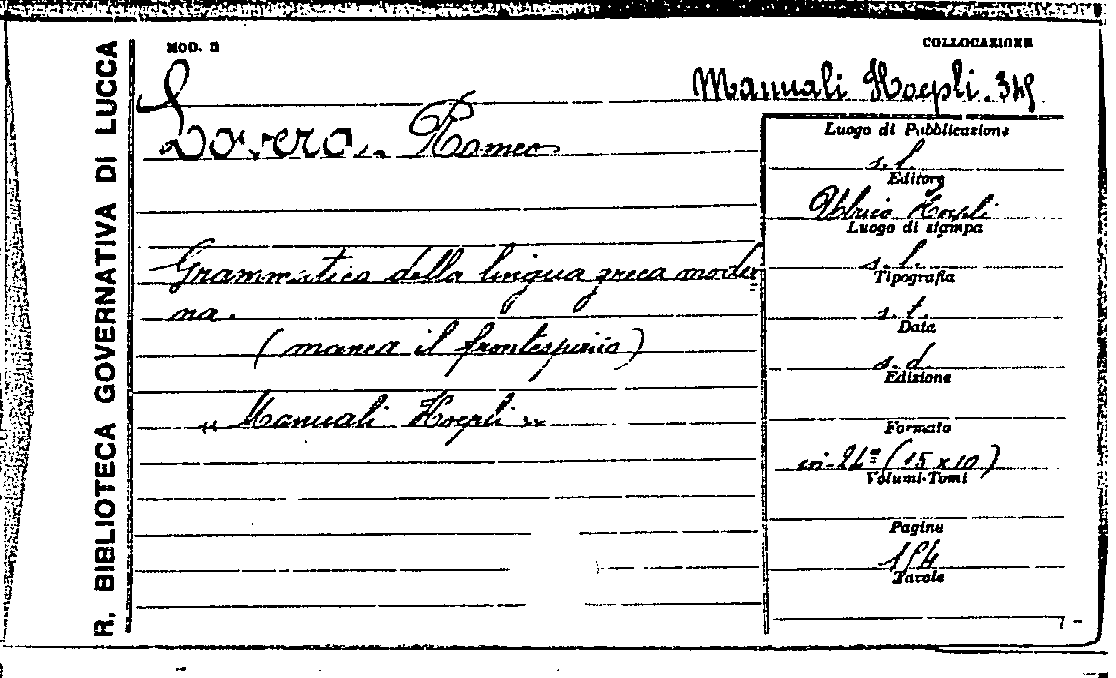 R. BIBLIOTECA GOVERNATIVA DI LUCCA
MOD. B
COLLOCAZIONE
Manuali Hoepli. 345
Lovera. Romeo
Grammatica della lingua greca moder
na.
(manca il frontespizio)
"Manuali Hoepli"
Luogo di Pubblicazione
s. l.
Editore
Ulrico Hoepli
Luogo di stampa
s. l.
Tipografia
s. t.
Data
s. d.
Edizione
Formato
in-24º (15 x 10)
Volumi-Tomi
Pagine
154
Tavole